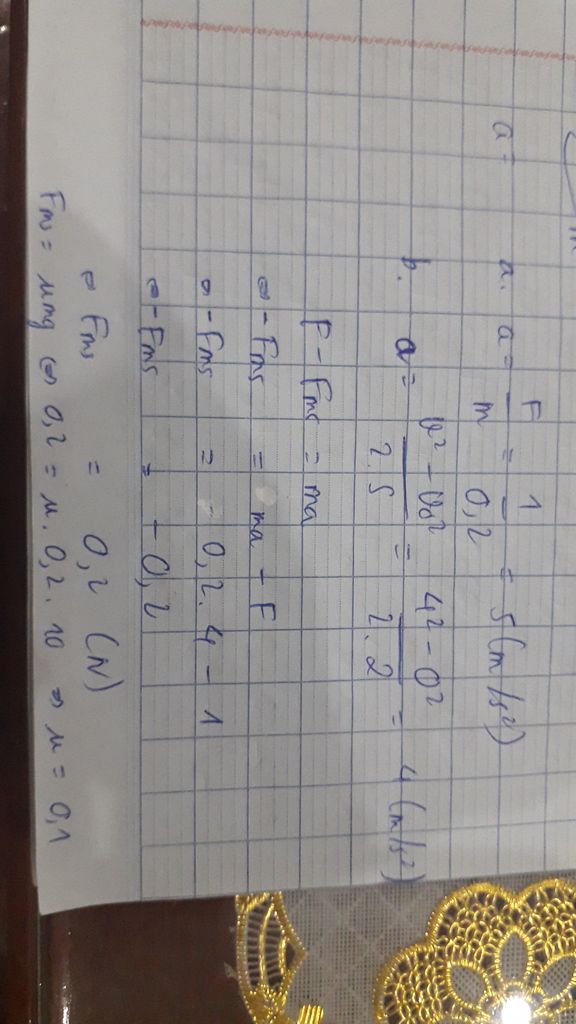 a =
a. a = F/m = 1/0,2 = 5 (m/s²)
b. a = v² - v₀²/2.S = 4² - 0²/2.2 = 4 (m/s²)
F - Fms = ma
⇔ - Fms = ma - F
⇔ - Fms = 0,2.4 - 1
⇔ - Fms = - 0,2
⇔ Fms = 0,2 (N)
Fms = μmg ⇔ 0,2 = μ. 0,2. 10 ⇔ μ = 0,1